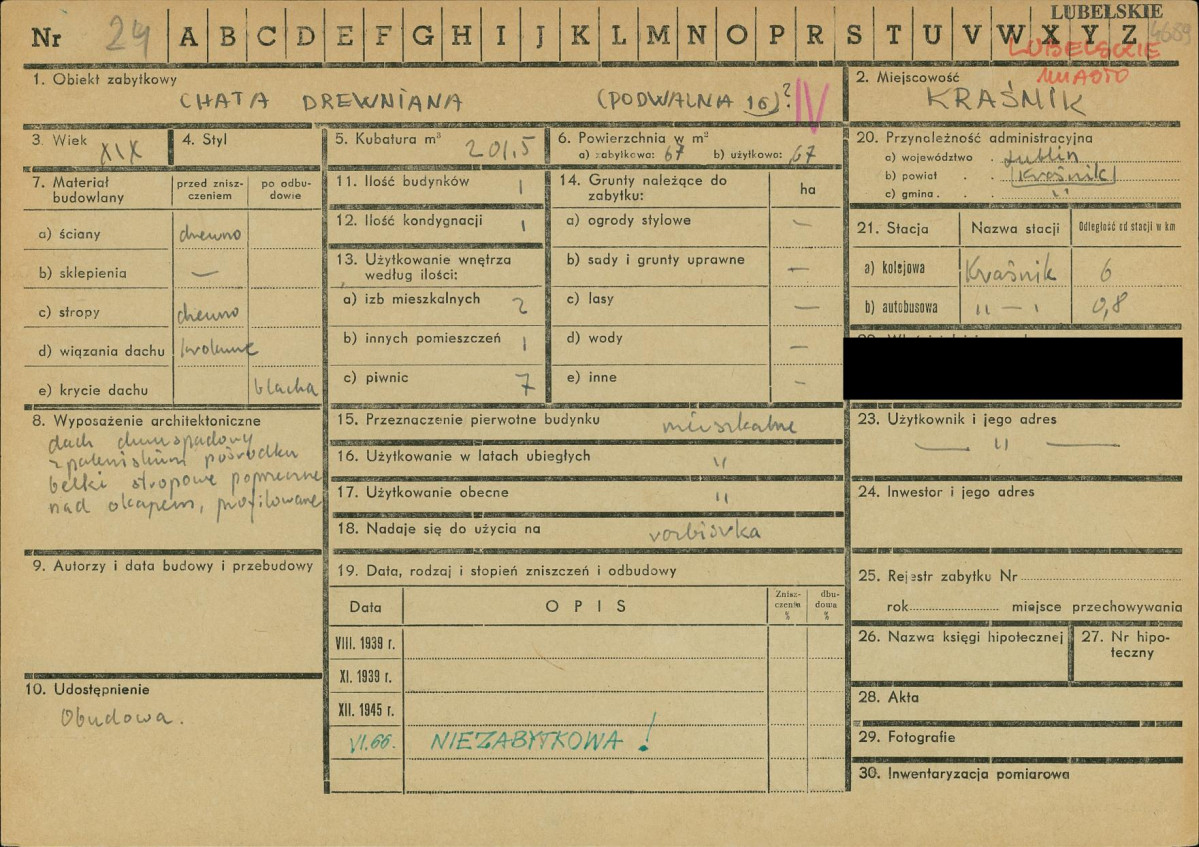 LUBELSKIE
Nr 24 A B C D E F G H I J K L M N O P R S T U V W X Y Z 4689
LUBELSKIE
MIASTO
1. Obiekt zabytkowy
CHATA DREWNIANA (PODWALNA 16)? IV
2. Miejscowość
KRAŚNIK
3. Wiek XIX
4. Styl
5. Kubatura m³ 201,5
6. Powierzchnia w m²
a) zabytkowa: 67 b) użytkowa: 67
20. Przynależność administracyjna
a) województwo Lublin
b) powiat Kraśnik
c) gmina "
7. Materiał budowlany
przed zniszczeniem
po odbudowie
a) ściany drewno
b) sklepienia —
c) stropy drewno
d) wiązania dachu
e) krycie dachu blacha
11. Ilość budynków 1
12. Ilość kondygnacji 1
13. Użytkowanie wnętrza
według ilości:
a) izb mieszkalnych 2
b) innych pomieszczeń 1
c) piwnic 7
14. Grunty należące do
zabytku:
ha
a) ogrody stylowe —
b) sady i grunty uprawne —
c) lasy —
d) wody —
e) inne -
21. Stacja
Nazwa stacji
Odległość od stacji w km
a) kolejowa Kraśnik 6
b) autobusowa " — " 0,8
8. Wyposażenie architektoniczne
dach dwuspadowy
z paleniskiem pośrodku
belki stropowe poprzeczne
nad okapem, profilowane
15. Przeznaczenie pierwotne budynku mieszkalne
16. Użytkowanie w latach ubiegłych "
17. Użytkowanie obecne "
18. Nadaje się do użycia na rozbiórka
23. Użytkownik i jego adres
— " —
24. Inwestor i jego adres
9. Autorzy i data budowy i przebudowy
19. Data, rodzaj i stopień zniszczeń i odbudowy
Data
OPIS
Zniszczenia %
dbudowa %
VIII. 1939 r.
XI. 1939 r.
XII. 1945 r.
VI.66. NIEZABYTKOWA!
25. Rejestr zabytku Nr
rok miejsce przechowywania
26. Nazwa księgi hipotecznej
27. Nr hipoteczny
10. Udostępnienie
Obudowa.
28. Akta
29. Fotografie
30. Inwentaryzacja pomiarowa